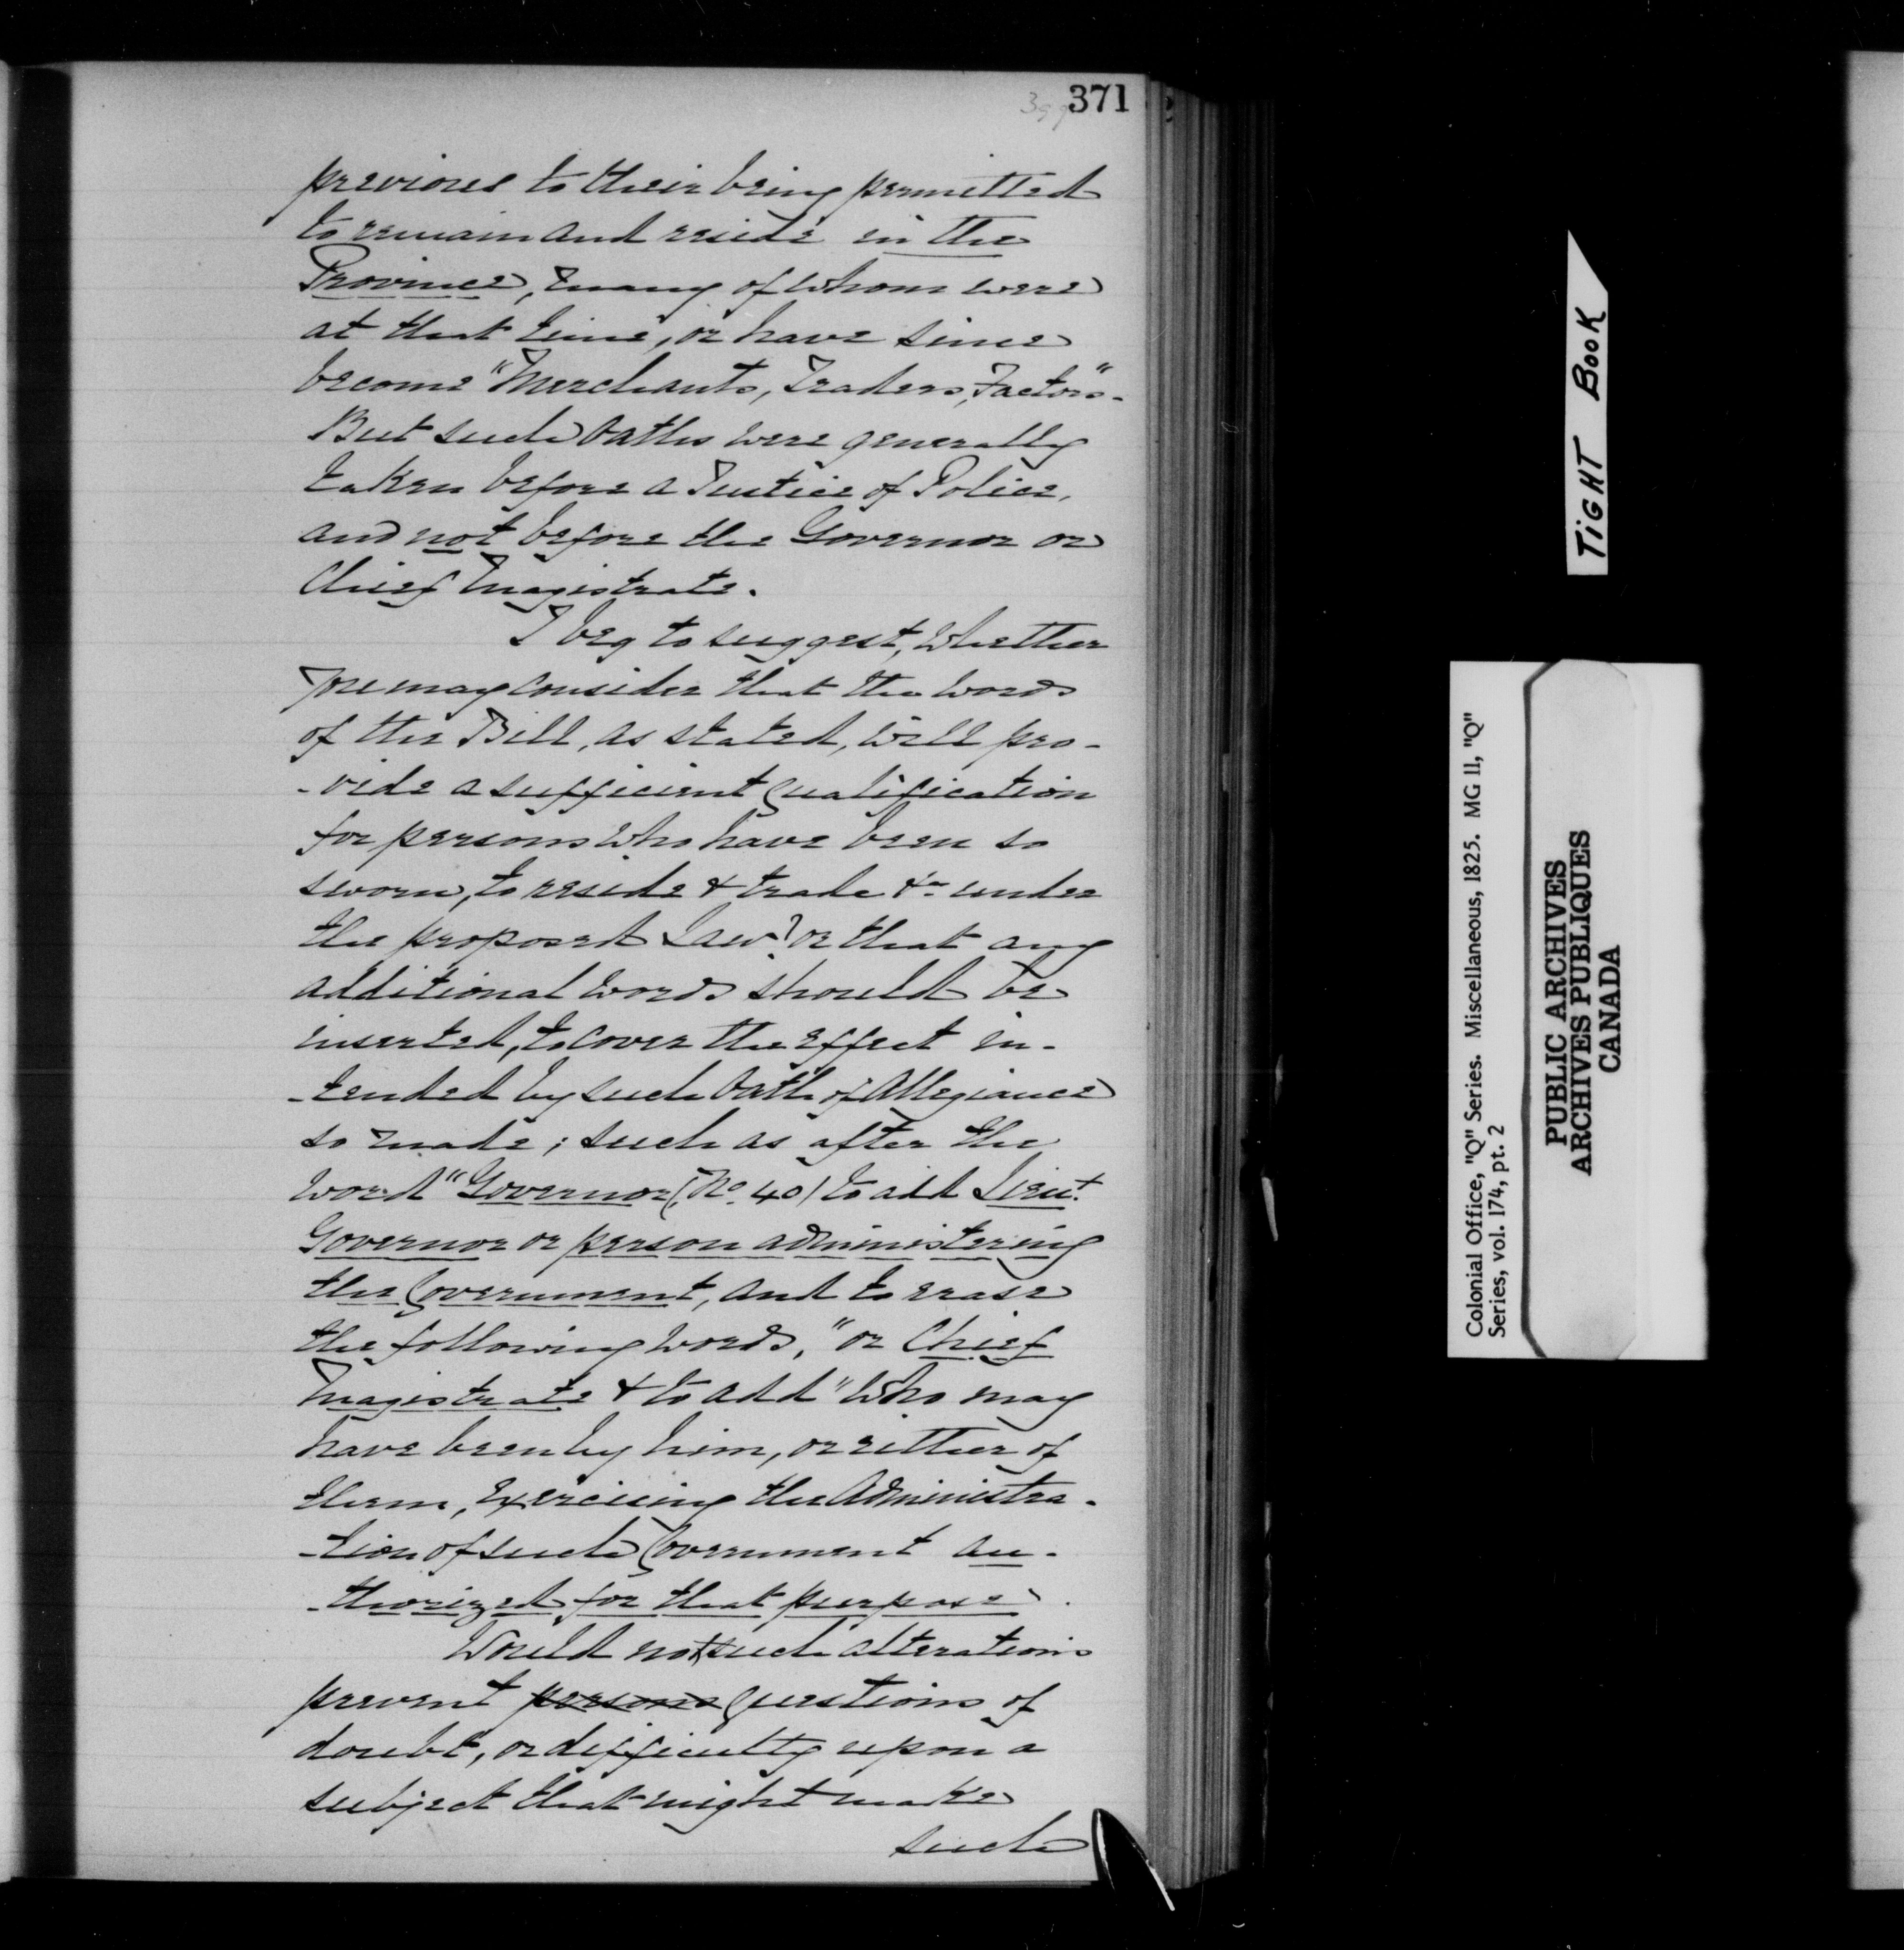 371
previous to their being permitted
to remain and reside in the
Province, many of whom were
at that time, or have since
become "Merchants, Traders, Factors"-
But such Oaths were generally
taken before a Justice of Police,
and not before the Governor or
Chief Magistrate.
I beg to suggest, Whether
you may consider that the words
of the Bill, as stated, will pro-
-vide a sufficient Qualification
for persons who have been so
sworn, to reside & trade &c under
the proposed Law? or that any
additional words should be
inserted, to cover the effect in-
-tended by such Oath of Allegiance
so made; such as after the
word "Governor (No. 40) to add Lieut.
Governor or person administering
the Government, and to erase
the following words, "or Chief
Magistrate & to add "Who may
have been by him, or either of
them, exercising the Administra-
-tion of such Government au-
-thorized for that purpose.
Would not such alterations
prevent persons Questions of
doubt, or difficulty upon a
subject that might make
such
TIGHT BOOK
Colonial Office, "Q" Series. Miscellaneous, 1825. MG 11, "Q"
Series, vol. 174, pt. 2
PUBLIC ARCHIVES
ARCHIVES PUBLIQUES
CANADA